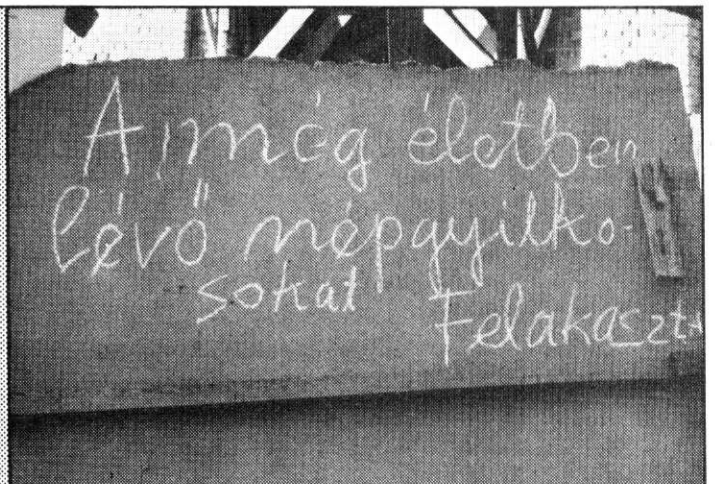 A még életben
lévő népgyilko-
sokat Felakaszt